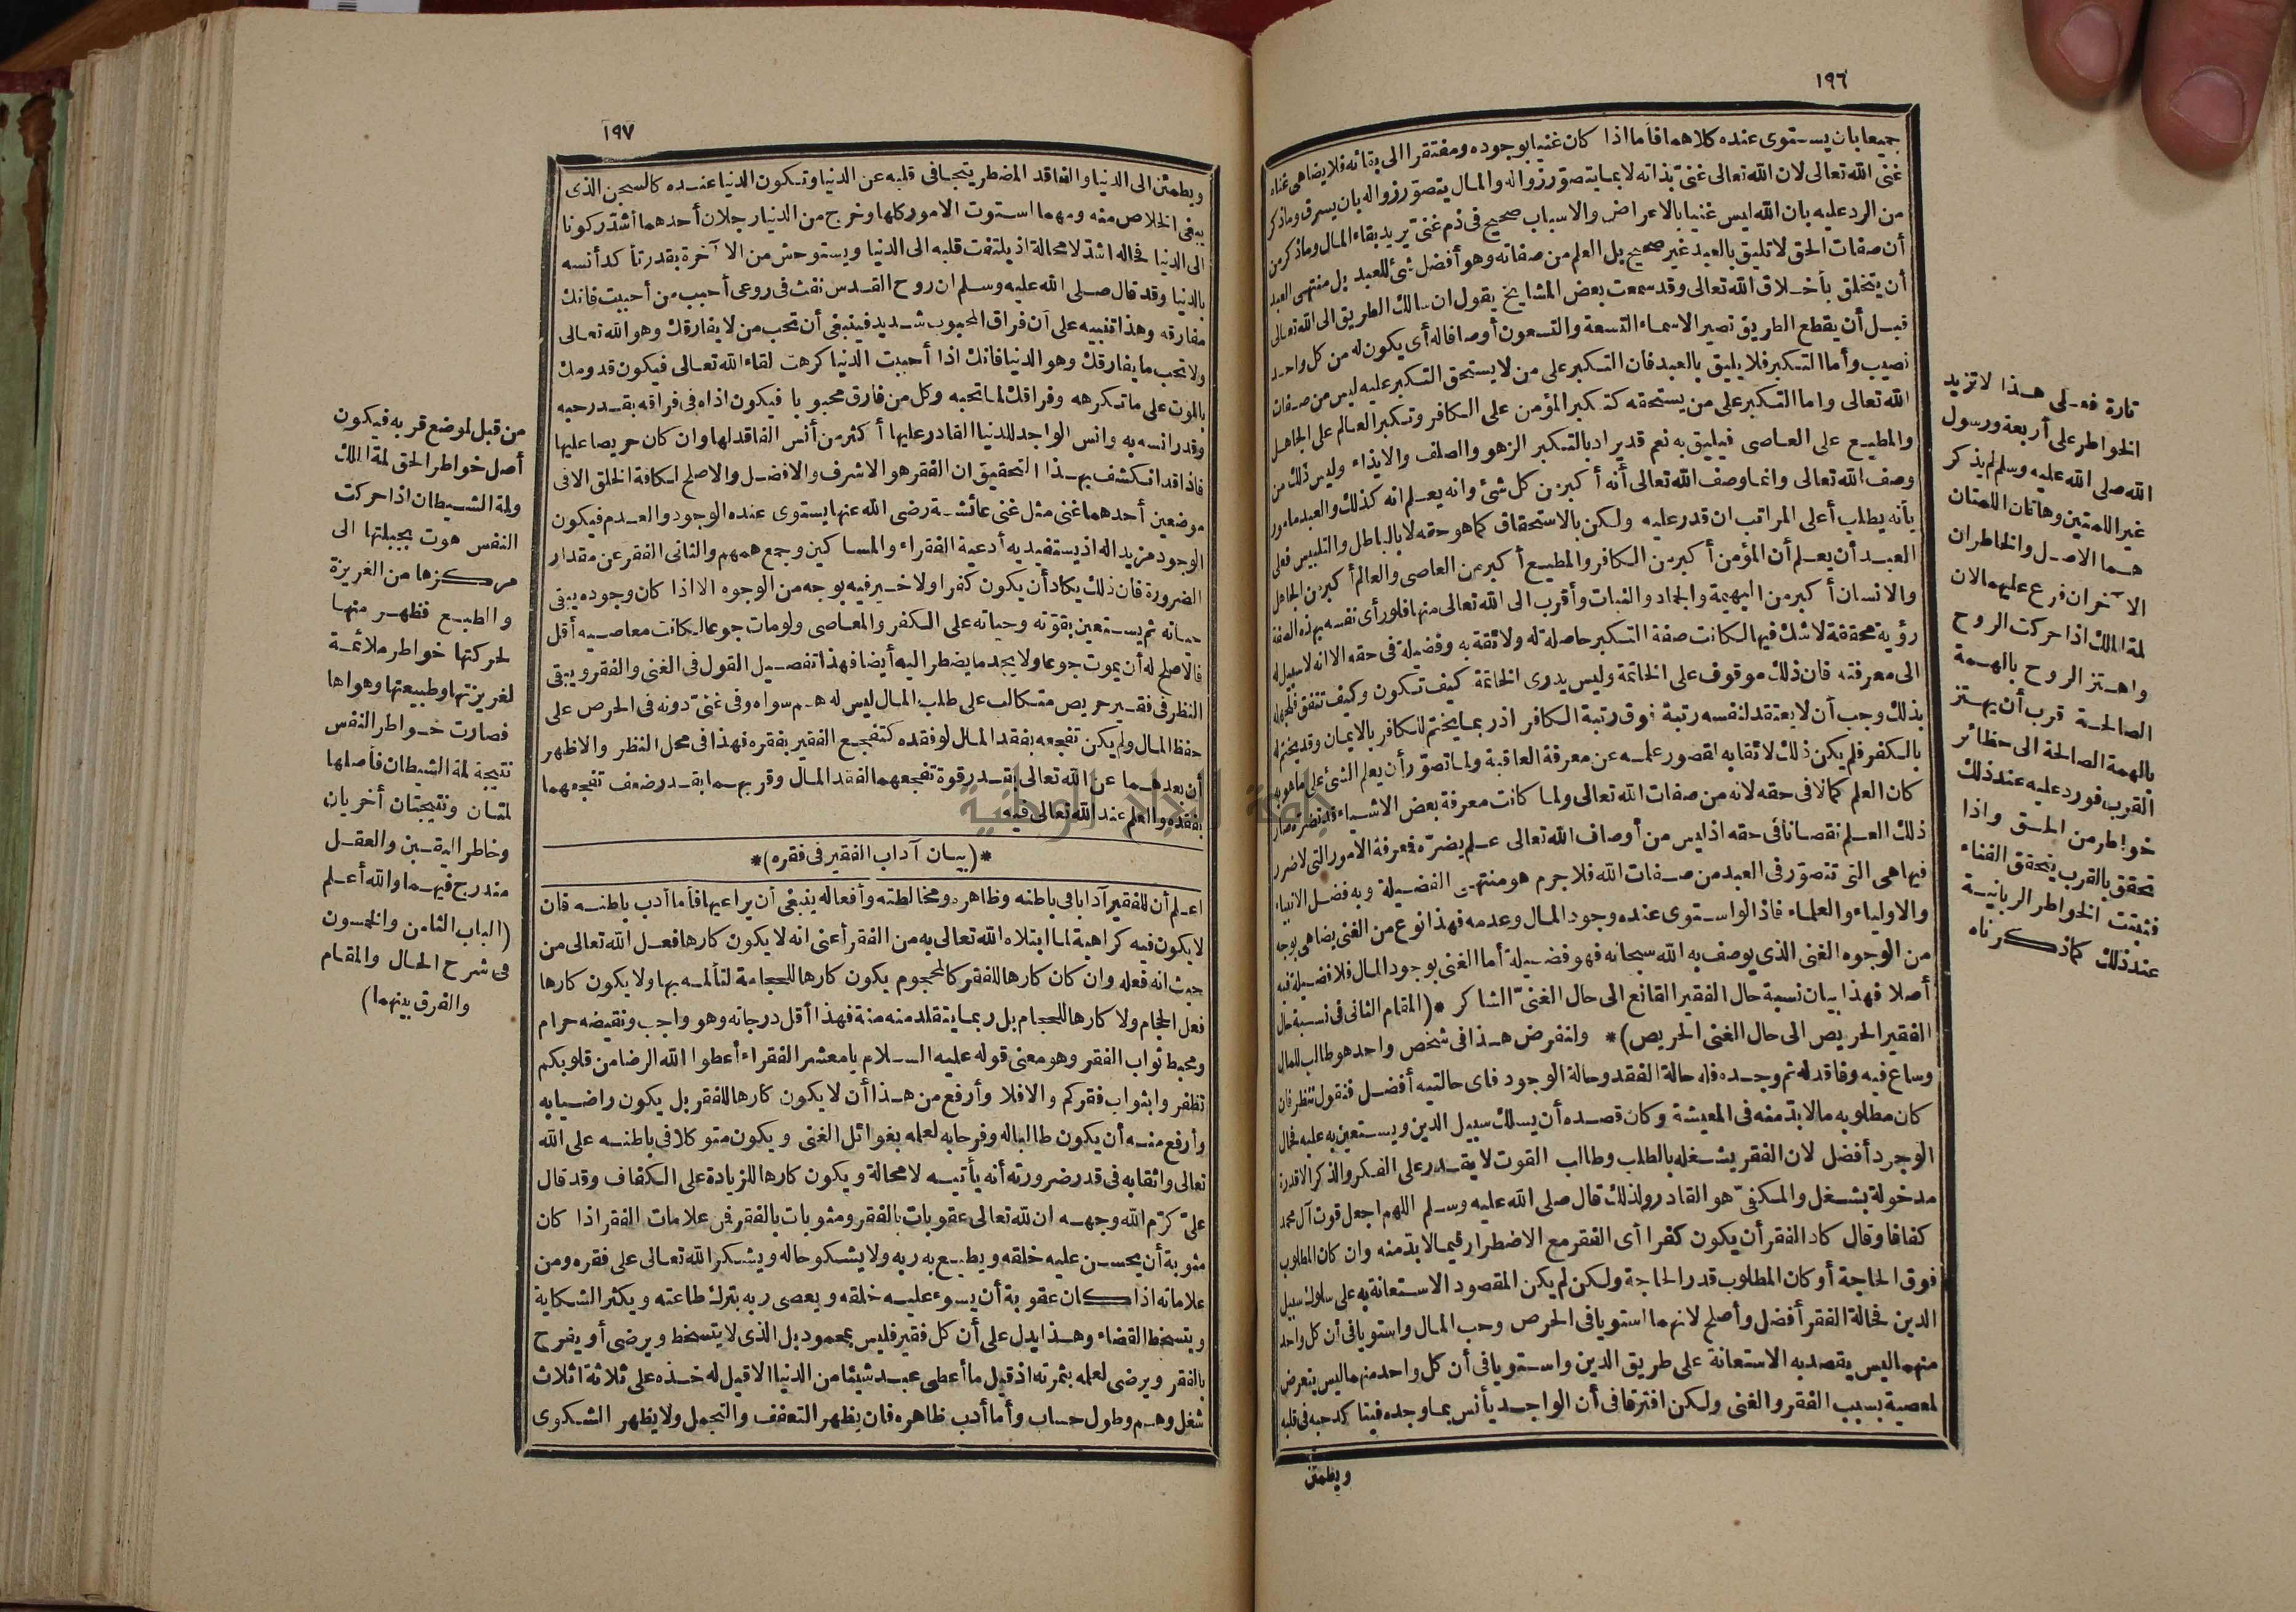 ١٩٦
جميعا بان يستوى عنده كلاهما فأما اذا كان غنيا بوجوده ومفتقرا الى بقائه فلا يضاهى غناه
غنى الله تعالى لان الله تعالى غنىّ بذاته لا بما يتصوّر زواله والمال يتصوّر زواله بان يسرق وما ذكر
من الرد عليه بان الله ليس غنيا بالاعراض والاسباب صحيح فى ذم غنىّ يريد بقاء المال وما ذكر من
أن صفات الحق لا تليق بالعبد غير صحيح بل العلم من صفاته وهو أفضل شئ للعبد بل منتهى العبد
أن يتخلق بأخلاق الله تعالى وقد سمعت بعض المشايخ يقول ان سالك الطريق الى الله تعالى
قبل أن يقطع الطريق تصير الاسماء التسعة والتسعون أوصافا له أى يكون له من كل واحد
نصيب وأما التكبر فلا يليق بالعبد فان التكبر على من لا يستحق التكبر عليه ليس من صفات
الله تعالى واما التكبر على من يستحقه كتكبر المؤمن على الكافر وتكبر العالم على الجاهل
والمطيع على العاصى فيليق به نعم قد يراد بالتكبر الزهو والصلف والايذاء وليس ذلك من
وصف الله تعالى وانما وصف الله تعالى أنه أكبر من كل شئ وانه يعلم انه كذلك والعبد مامور
بأنه يطلب أعلى المراتب ان قدر عليه ولكن بالاستحقاق كما هو حقه لا بالباطل والتلبيس فعلى
العبد أن يعلم أن المؤمن أكبر من الكافر والمطيع أكبر من العاصى والعالم أكبر من الجاهل
والانسان أكبر من البهيمة والجماد والنبات وأقرب الى الله تعالى منها فلو رأى نفسه بهذه الصفة
رؤية محققة لا شك فيها لكانت صفة التكبر حاصلة له ولائقة به وفضيلة فى حقه الا انه لا سبيل له
الى معرفته فان ذلك موقوف على الخاتمة وليس يدرى الخاتمة كيف تكون وكيف تتفق فلجهله
بذلك وجب أن لا يعتقد لنفسه رتبة فوق رتبة الكافر اذ ربما يختم للكافر بالايمان وقد يختم له
بالكفر فلم يكن ذلك لائقا به لقصور علمه عن معرفة العاقبة ولما تصوّر أن يعلم الشئ على ما هو به
كان العلم كمالا فى حقه لانه من صفات الله تعالى ولما كانت معرفة بعض الاشياء قد تضره صار
ذلك العلم نقصانا فى حقه اذ ليس من أوصاف الله تعالى علم يضرّه فمعرفة الامور التى لا ضرر
فيها هى التى تتصوّر فى العبد من صفات الله فلا جرم هو منتهى الفضيلة وبه فضل الانبياء
والاولياء والعلماء فاذا لو استوى عنده وجود المال وعدمه فهذا نوع من الغنى يضاهى بوجه
من الوجوه الغنى الذى يوصف به الله سبحانه فهو فضيلة أما الغنى بوجود المال فلا فضيلة فيه
أصلا فهذا بيان نسبة حال الفقير القانع الى حال الغنىّ الشاكر *(المقام الثانى فى نسبة حال
الفقير الحريص الى حال الغنى الحريص)* ولنفرض هذا فى شخص واحد هو طالب للمال
وساع فيه وفاقد له ثم وجده فله حالة الفقد وحالة الوجود فاى حالتيه أفضل فنقول ننظر فان
كان مطلوبه ما لا بدّ منه فى المعيشة وكان قصده أن يسلك سبيل الدين ويستعين به عليه فحال
الوجود أفضل لان الفقر يشغله بالطلب وطالب القوت لا يقدر على الفكر والذكر الا قدرة
مدخولة بشغل والمكفىّ هو القادر ولذلك قال صلى الله عليه وسلم اللهم اجعل قوت آل محمد
كفافا وقال كاد الفقر أن يكون كفرا أى الفقر مع الاضطرار فيما لا بدّ منه وان كان المطلوب
فوق الحاجة أو كان المطلوب قدر الحاجة ولكن لم يكن المقصود الاستعانة به على سلوك سبيل
الدين فحالة الفقر أفضل وأصلح لانهما استويا فى الحرص وحب المال واستويا فى أن كل واحد
منهما ليس يقصد به الاستعانة على طريق الدين واستويا فى أن كل واحد منهما ليس يتعرض
لمعصية بسبب الفقر والغنى ولكن افترقا فى أن الواجد يأنس بما وجده فيتأكد حبه فى قلبه
ويطمئن
تارة فعلى هذا لا تزيد
الخواطر على أربعة ورسول
الله صلى الله عليه وسلم لم يذكر
غير اللمتين وهاتان اللمتان
هما الاصل والخاطران
الآخران فرع عليهما لان
لمة الملك اذا حركت الروح
واهتز الروح بالهمة
الصالحة قرب أن يهتز
بالهمة الصالحة الى حظائر
القرب فورد عليه عند ذلك
خواطر من الحق واذا
تحقق بالقرب يتحقق الفناء
فتثبت الخواطر الربانية
عند ذلك كما ذكرناه
١٩٧
ويطمئن الى الدنيا والفاقد المضطر يتجافى قلبه عن الدنيا وتكون الدنيا عنده كالسجن الذى
يبغى الخلاص منه ومهما استوت الامور كلها وخرج من الدنيا رجلان أحدهما أشدّ ركونا
الى الدنيا فحاله اشدّ لا محالة اذ يلتفت قلبه الى الدنيا ويستوحش من الآخرة بقدر تأكد أنسه
بالدنيا وقد قال صلى الله عليه وسلم ان روح القدس نفث فى روعى أحبب من أحببت فانك
مفارقه وهذا تنبيه على أن فراق المحبوب شديد فينبغى أن تحب من لا يفارقك وهو الله تعالى
ولا تحب ما يفارقك وهو الدنيا فانك اذا أحببت الدنيا كرهت لقاء الله تعالى فيكون قدومك
بالموت على ما تكرهه وفراقك لما تحبه وكل من فارق محبوبا فيكون اذاه فى فراقه بقدر حبه
وقدر انسه به وانس الواجد للدنيا القادر عليها أكثر من أنس الفاقد لها وان كان حريصا عليها
فاذا قد انكشف بهذا التحقيق ان الفقر هو الاشرف والافضل والاصلح لكافة الخلق الا فى
موضعين أحدهما غنى مثل غنى عائشة رضى الله عنها يستوى عنده الوجود والعدم فيكون
الوجود مزيدا له اذ يستفيد به أدعية الفقراء والمساكين وجمع همهم والثانى الفقر عن مقدار
الضرورة فان ذلك يكاد أن يكون كفرا ولا خير فيه بوجه من الوجوه الا اذا كان وجوده يبقى
حياته ثم يستعين بقوّته وحياته على الكفر والمعاصى ولو مات جوعا لكانت معاصيه أقل
فالاصلح له أن يموت جوعا ولا يجد ما يضطر اليه أيضا فهذا تفصيل القول فى الغنى والفقر ويبقى
النظر فى فقير حريص متكالب على طلب المال ليس له هم سواه وفى غنىّ دونه فى الحرص على
حفظ المال ولم يكن تفجعه بفقد المال لو فقده كتفجع الفقير بفقره فهذا فى محل النظر والاظهر
أن بعدهما عن الله تعالى بقدر قوة تفجعهما لفقد المال وقربهما بقدر ضعف تفجعهما
بفقده والعلم عند الله تعالى فيه
*(بيان آداب الفقير فى فقره)*
اعلم أن للفقير آدابا فى باطنه وظاهره ومخالطته وأفعاله ينبغى أن يراعيها فأما أدب باطنه فان
لا يكون فيه كراهية لما ابتلاه الله تعالى به من الفقر أعنى انه لا يكون كارها فعل الله تعالى من
حيث انه فعله وان كان كارها للفقر كالمحجوم يكون كارها للحجامة لتألمه بها ولا يكون كارها
فعل الحجام ولا كارها للحجام بل ربما يتقلد منه منة فهذا أقل درجاته وهو واجب ونقيضه حرام
ومحبط ثواب الفقر وهو معنى قوله عليه السلام يا معشر الفقراء أعطوا الله الرضا من قلوبكم
تظفروا بثواب فقركم والا فلا وأرفع من هذا أن لا يكون كارها للفقر بل يكون راضيا به
وأرفع منه أن يكون طالبا له وفرحا به لعلمه بغوائل الغنى ويكون متوكلا فى باطنه على الله
تعالى واثقا به فى قدر ضرورته أنه يأتيه لا محالة ويكون كارها للزيادة على الكفاف وقد قال
علىّ كرّم الله وجهه ان لله تعالى عقوبات بالفقر ومثوبات بالفقر فمن علامات الفقر اذا كان
مثوبة أن يحسن عليه خلقه ويطيع به ربه ولا يشكو حاله ويشكر الله تعالى على فقره ومن
علاماته اذا كان عقوبة أن يسوء عليه خلقه ويعصى ربه بترك طاعته ويكثر الشكاية
ويتسخط القضاء وهذا يدل على أن كل فقير فليس بمحمود بل الذى لا يتسخط ويرضى أو يفرح
بالفقر ويرضى لعلمه بثمرته اذ قيل ما أعطى عبد شيئا من الدنيا الا قيل له خذه على ثلاثة اثلاث
شغل وهم وطول حساب وأما أدب ظاهره فان يظهر التعفف والتجمل ولا يظهر الشكوى
من قبل لموضع قربه فيكون
أصل خواطر الحق لمة الملك
ولمة الشيطان اذا حركت
النفس هوت بجبلتها الى
مركزها من الغريزة
والطبع فظهر منها
لحركتها خواطر ملائمة
لغريزتها وطبيعتها وهواها
فصارت خواطر النفس
نتيجة لمة الشيطان فأصلها
لمتان ونتيجتان أخريان
وخاطر اليقين والعقل
مندرج فيهما والله أعلم
(الباب الثامن والخمسون
فى شرح الحال والمقام
والفرق بينهما)
جامعة النجاح الوطنية